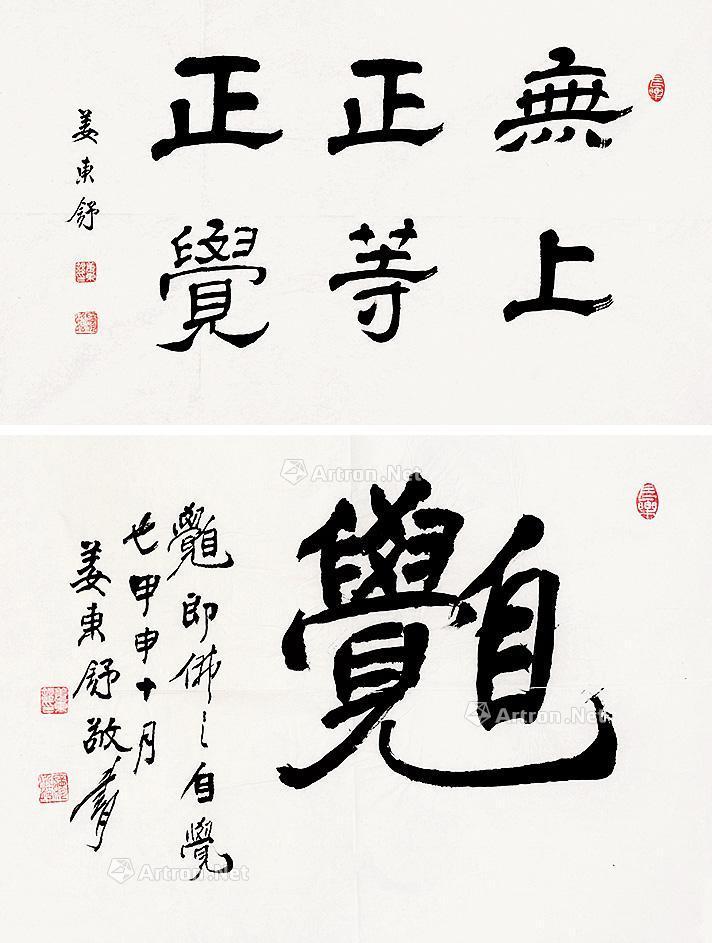 無上
正等
正覺
姜東舒
即佛之自覺
也甲申十月
姜東舒敬書
Artron.Net
Artron.Net
Artron.Net